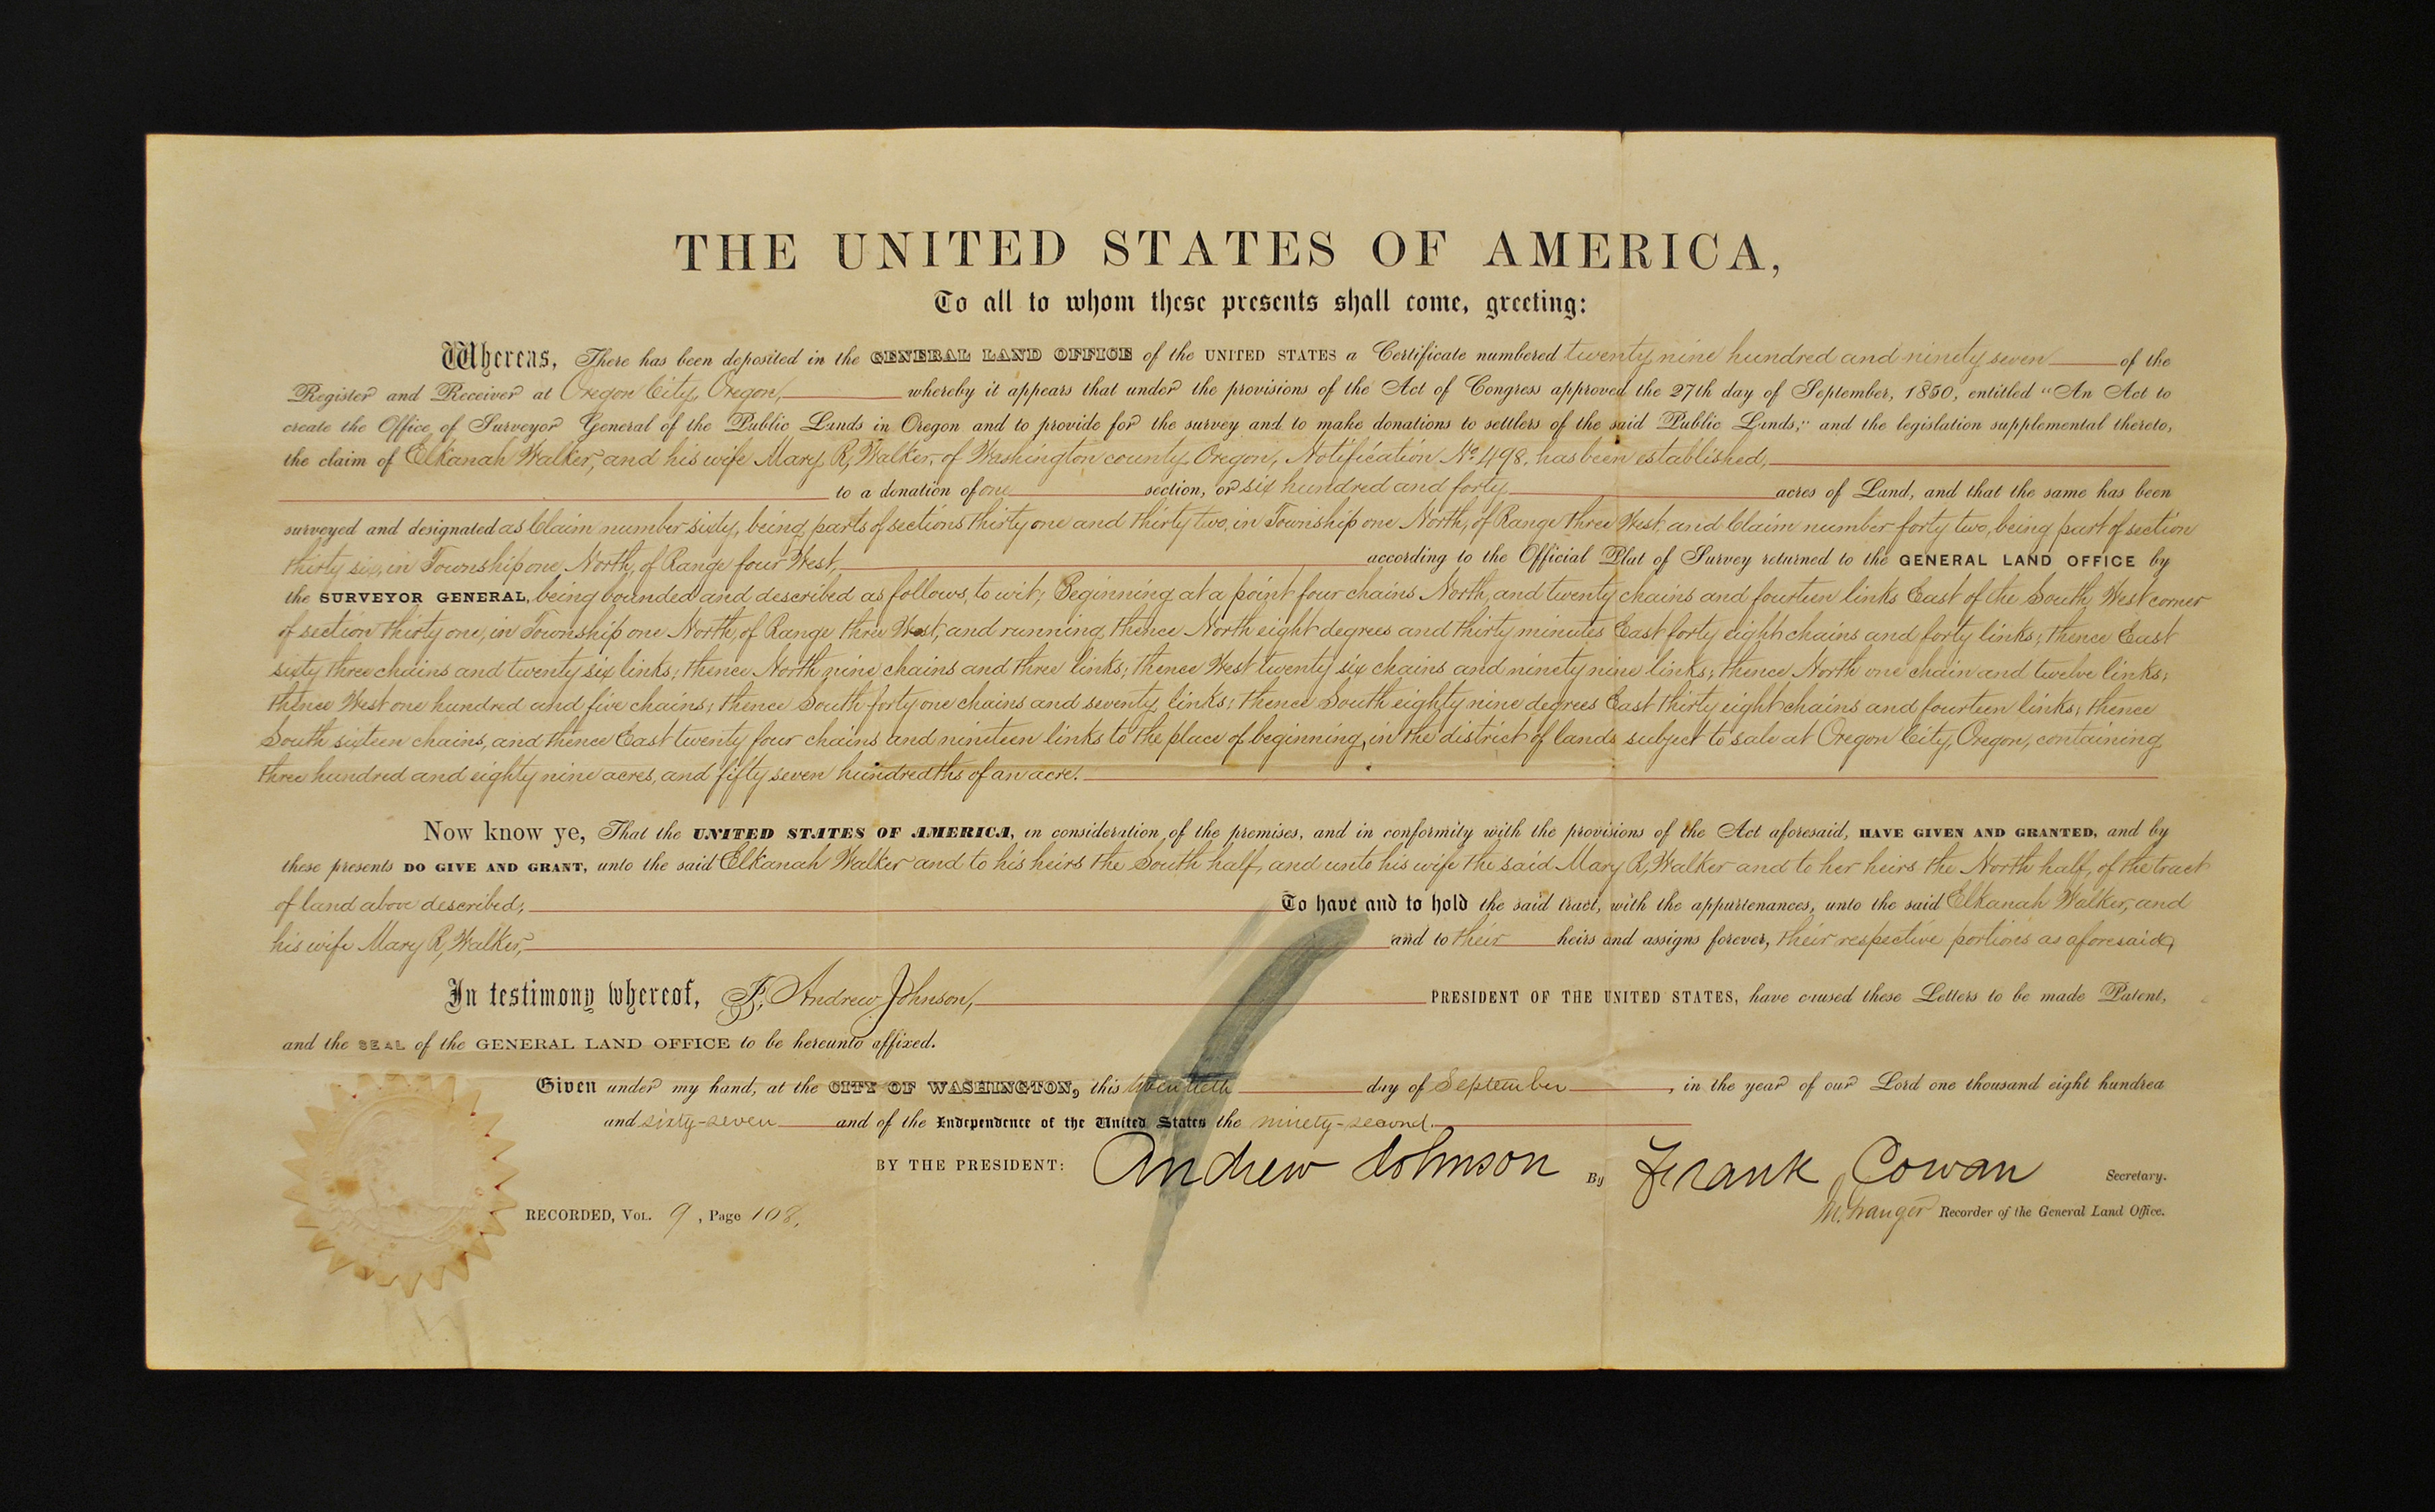 THE UNITED STATES OF AMERICA,
To all to whom these presents shall come, greeting:
Whereas, There has been deposited in the GENERAL LAND OFFICE of the UNITED STATES a Certificate numbered twenty nine hundred and ninety seven of the
Register and Receiver at Oregon City, Oregon, whereby it appears that under the provisions of the Act of Congress approved the 27th day of September, 1850, entitled "An Act to
create the Office of Surveyor General of the Public Lands in Oregon and to provide for the survey and to make donations to settlers of the said Public Lands," and the legislation supplemental thereto,
the claim of Elkanah Walker, and his wife Mary R, Walker, of Washington county, Oregon, Notification No 498. has been established,
to a donation of one section, or six hundred and forty acres of Land, and that the same has been
surveyed and designated as Claim number sixty, being parts of sections thirty one and thirty two, in Township one North, of Range three West, and Claim number forty two, being part of section
thirty six, in Township one North, of Range four West, according to the Official Plat of Survey returned to the GENERAL LAND OFFICE by
the SURVEYOR GENERAL, being bounded and described as follows, to wit; Beginning at a point four chains North, and twenty chains and fourteen links East of the South West corner
of section thirty one, in Township one North, of Range three West, and running thence North eight degrees and thirty minutes East forty eight chains and forty links; thence East
sixty three chains and twenty six links; thence North nine chains and three links; thence West twenty six chains and ninety nine links; thence North one chain and twelve links;
thence West one hundred and five chains; thence South forty one chains and seventy links; thence South eighty nine degrees East thirty eight chains and fourteen links; thence
South sixteen chains, and thence East twenty four chains and nineteen links to the place of beginning, in the district of lands subject to sale at Oregon City, Oregon, containing
three hundred and eighty nine acres, and fifty seven hundredths of an acre.
Now know ye, That the UNITED STATES OF AMERICA, in consideration of the premises, and in conformity with the provisions of the Act aforesaid, HAVE GIVEN AND GRANTED, and by
these presents DO GIVE AND GRANT, unto the said Elkanah Walker and to his heirs the South half, and unto his wife the said Mary R, Walker and to her heirs the North half, of the tract
of land above described; To have and to hold the said tract, with the appurtenances, unto the said Elkanah Walker, and
his wife Mary R, Walker, and to their heirs and assigns forever, their respective portions as aforesaid,
In testimony whereof, I, Andrew Johnson, PRESIDENT OF THE UNITED STATES, have caused these Letters to be made Patent,
and the SEAL of the GENERAL LAND OFFICE to be hereunto affixed.
Given under my hand, at the CITY OF WASHINGTON, this twentieth day of September, in the year of our Lord one thousand eight hundred
and sixty-seven and of the Independence of the United States the ninety-second.
BY THE PRESIDENT: Andrew Johnson By Frank Cowan Secretary.
RECORDED, VOL. 9, Page 108, Recorder of the General Land Office.